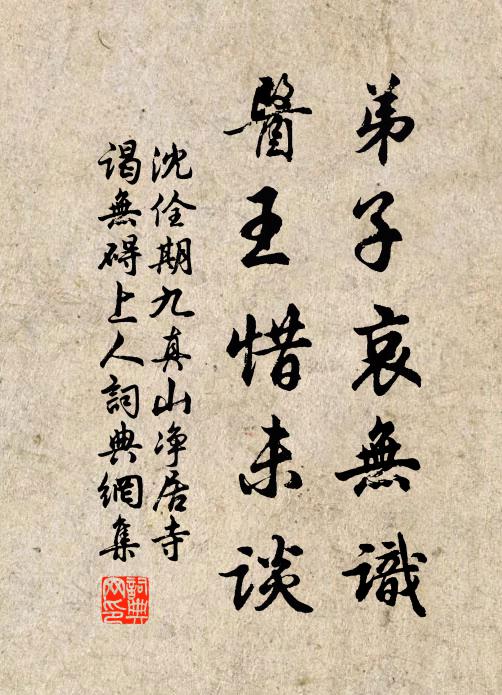 弟子哀無識
醫王惜未谈
沈佺期九真山净居寺
谒無碍上人詞典網集
詞典网印